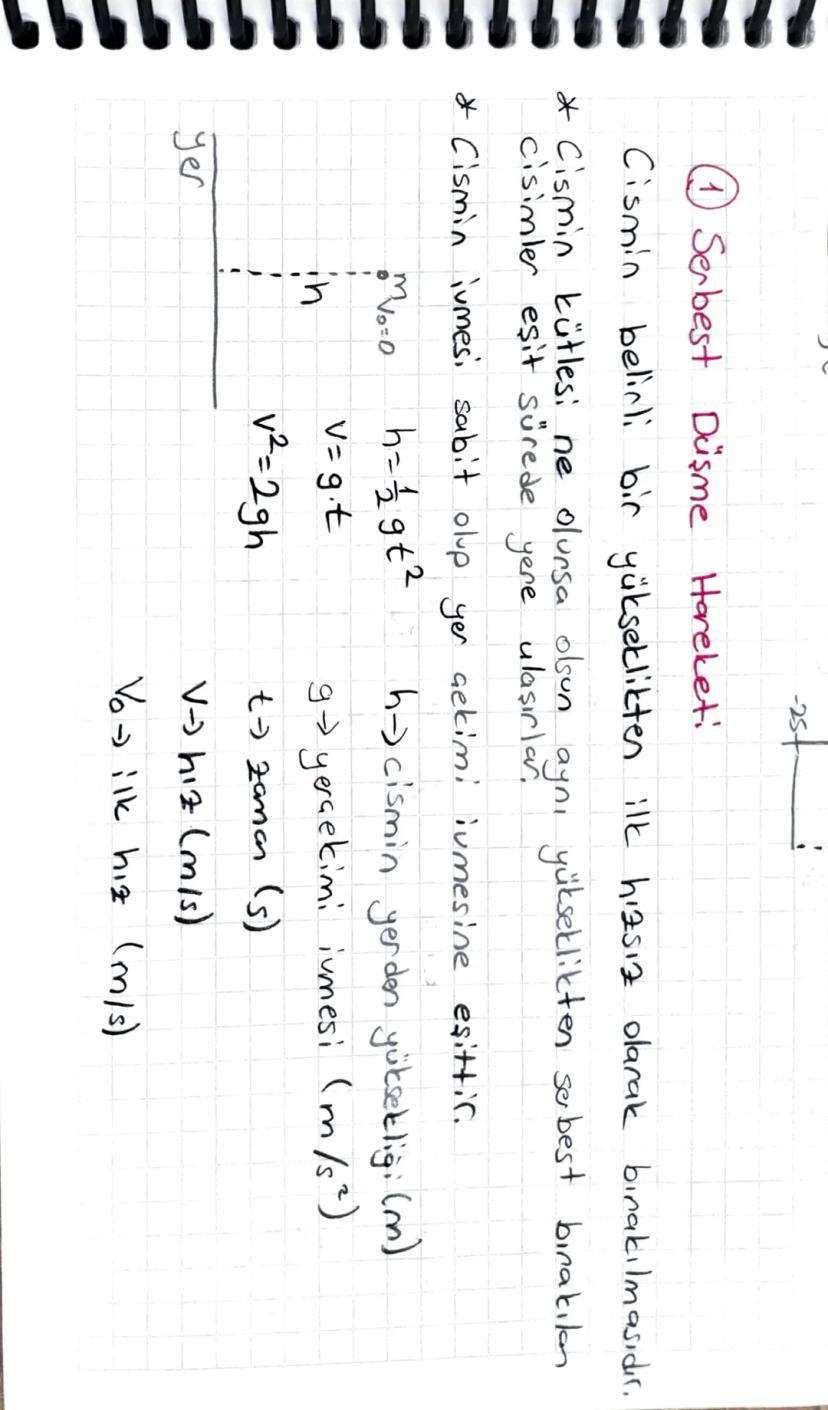 -25
① Serbest Düşme Hareketi
Cismin belirli bir yükseklikten ilk hızsız olarak bırakılmasıdır.
* Cismin kütlesi ne olursa olsun aynı yükseklikten serbest bırakılan
cisimler eşit sürede yere ulaşırlar.
* Cismin ivmesi sabit olup yer çekimi ivmesine eşittir.
m
V₀=0
h
yer
h=½gt²
v=g.t
v²=2gh
h→cismin yerden yüksekliği (m)
g→yerçekimi ivmesi (m/s²)
t→ zaman (s)
v→ hız (m/s)
V₀→ ilk hız (m/s)